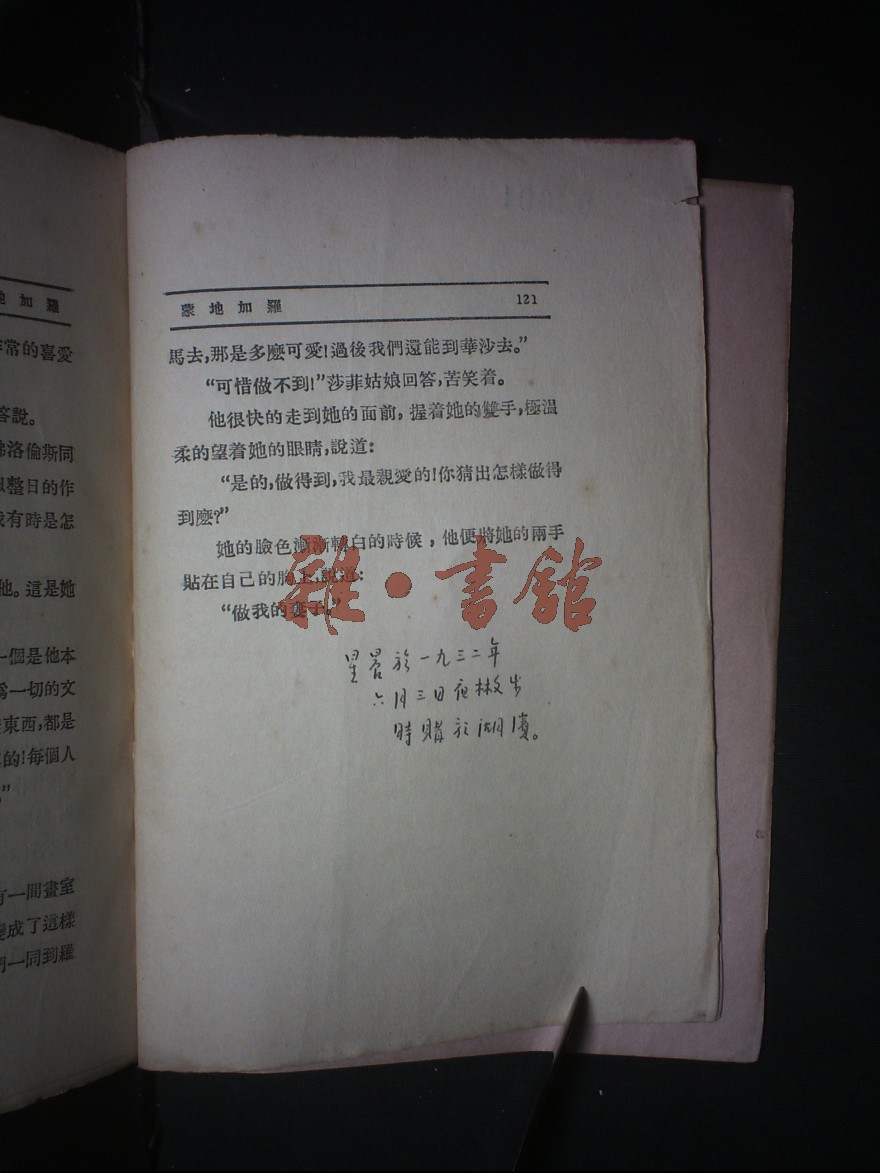 地加羅
常的喜愛
答說。
弗洛倫斯同
以整日的作
我有時是怎
他。這是她
一個是他本
爲一切的文
東西,都是
的!每個人
”
有一間畫室
變成了這樣
們一同到羅
蒙地加羅 121
馬去,那是多麼可愛!過後我們還能到華沙去。”
“可惜做不到!”莎菲姑娘回答,苦笑着。
他很快的走到她的面前,握着她的雙手,極温
柔的望着她的眼睛,說道:
“是的,做得到,我最親愛的!你猜出怎樣做得
到麼?”
她的臉色漸漸轉白的時候,他便將她的兩手
貼在自己的胸上,說道:
“做我的妻子。”
雜·書舘
星 於一九三二年
六月三日夜散步
時購於湖濱。